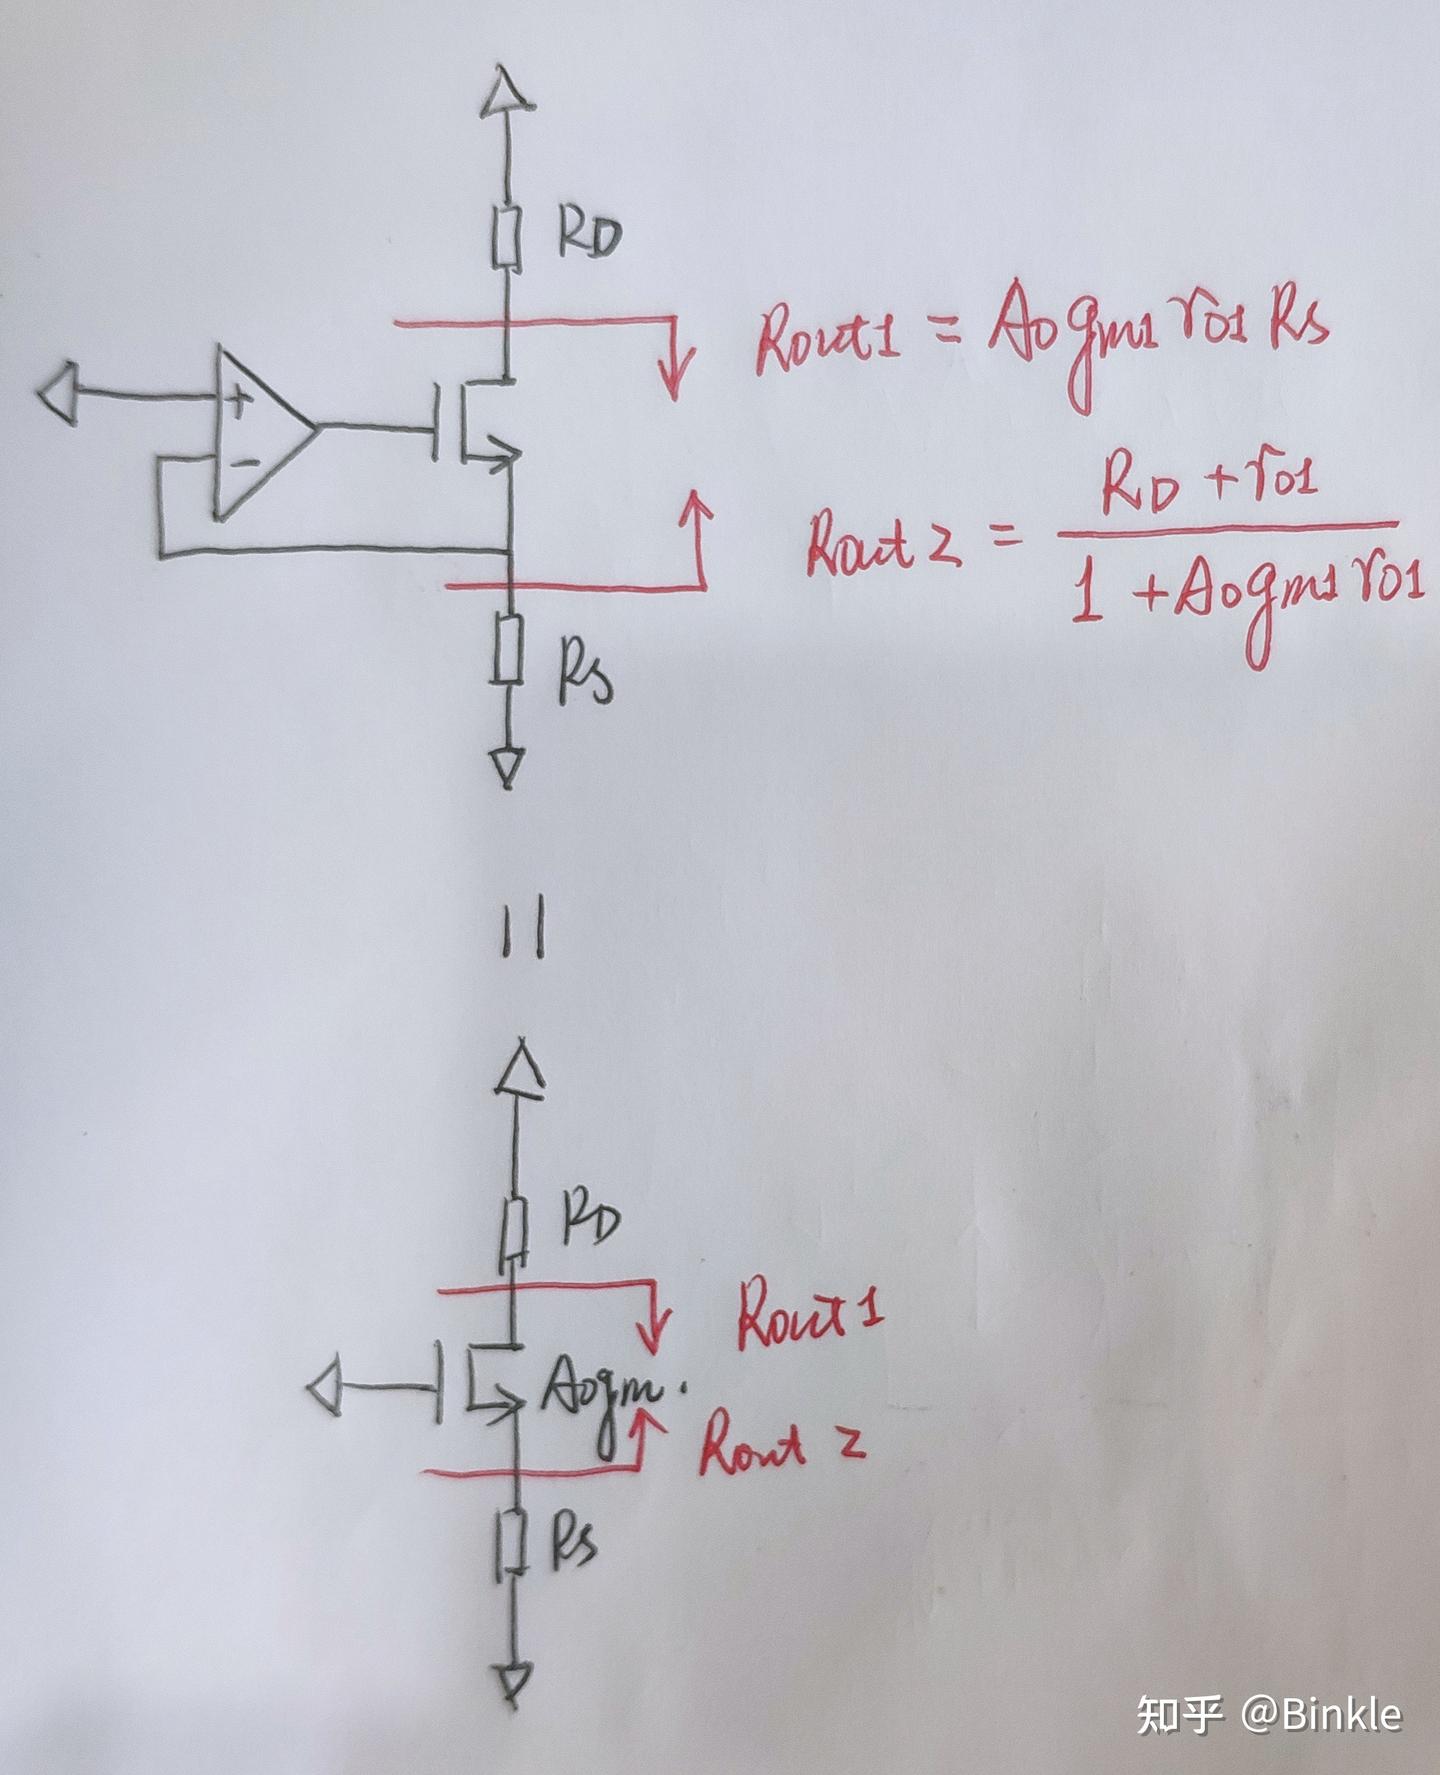 RD
+
-
Rout1 = A0gm1 r01 Rs
Rout2 = RD + r01
1 + A0gm1 r01
Rs
=
RD
Rout1
A0gm.
Rout 2
Rs
知乎 @Binkle